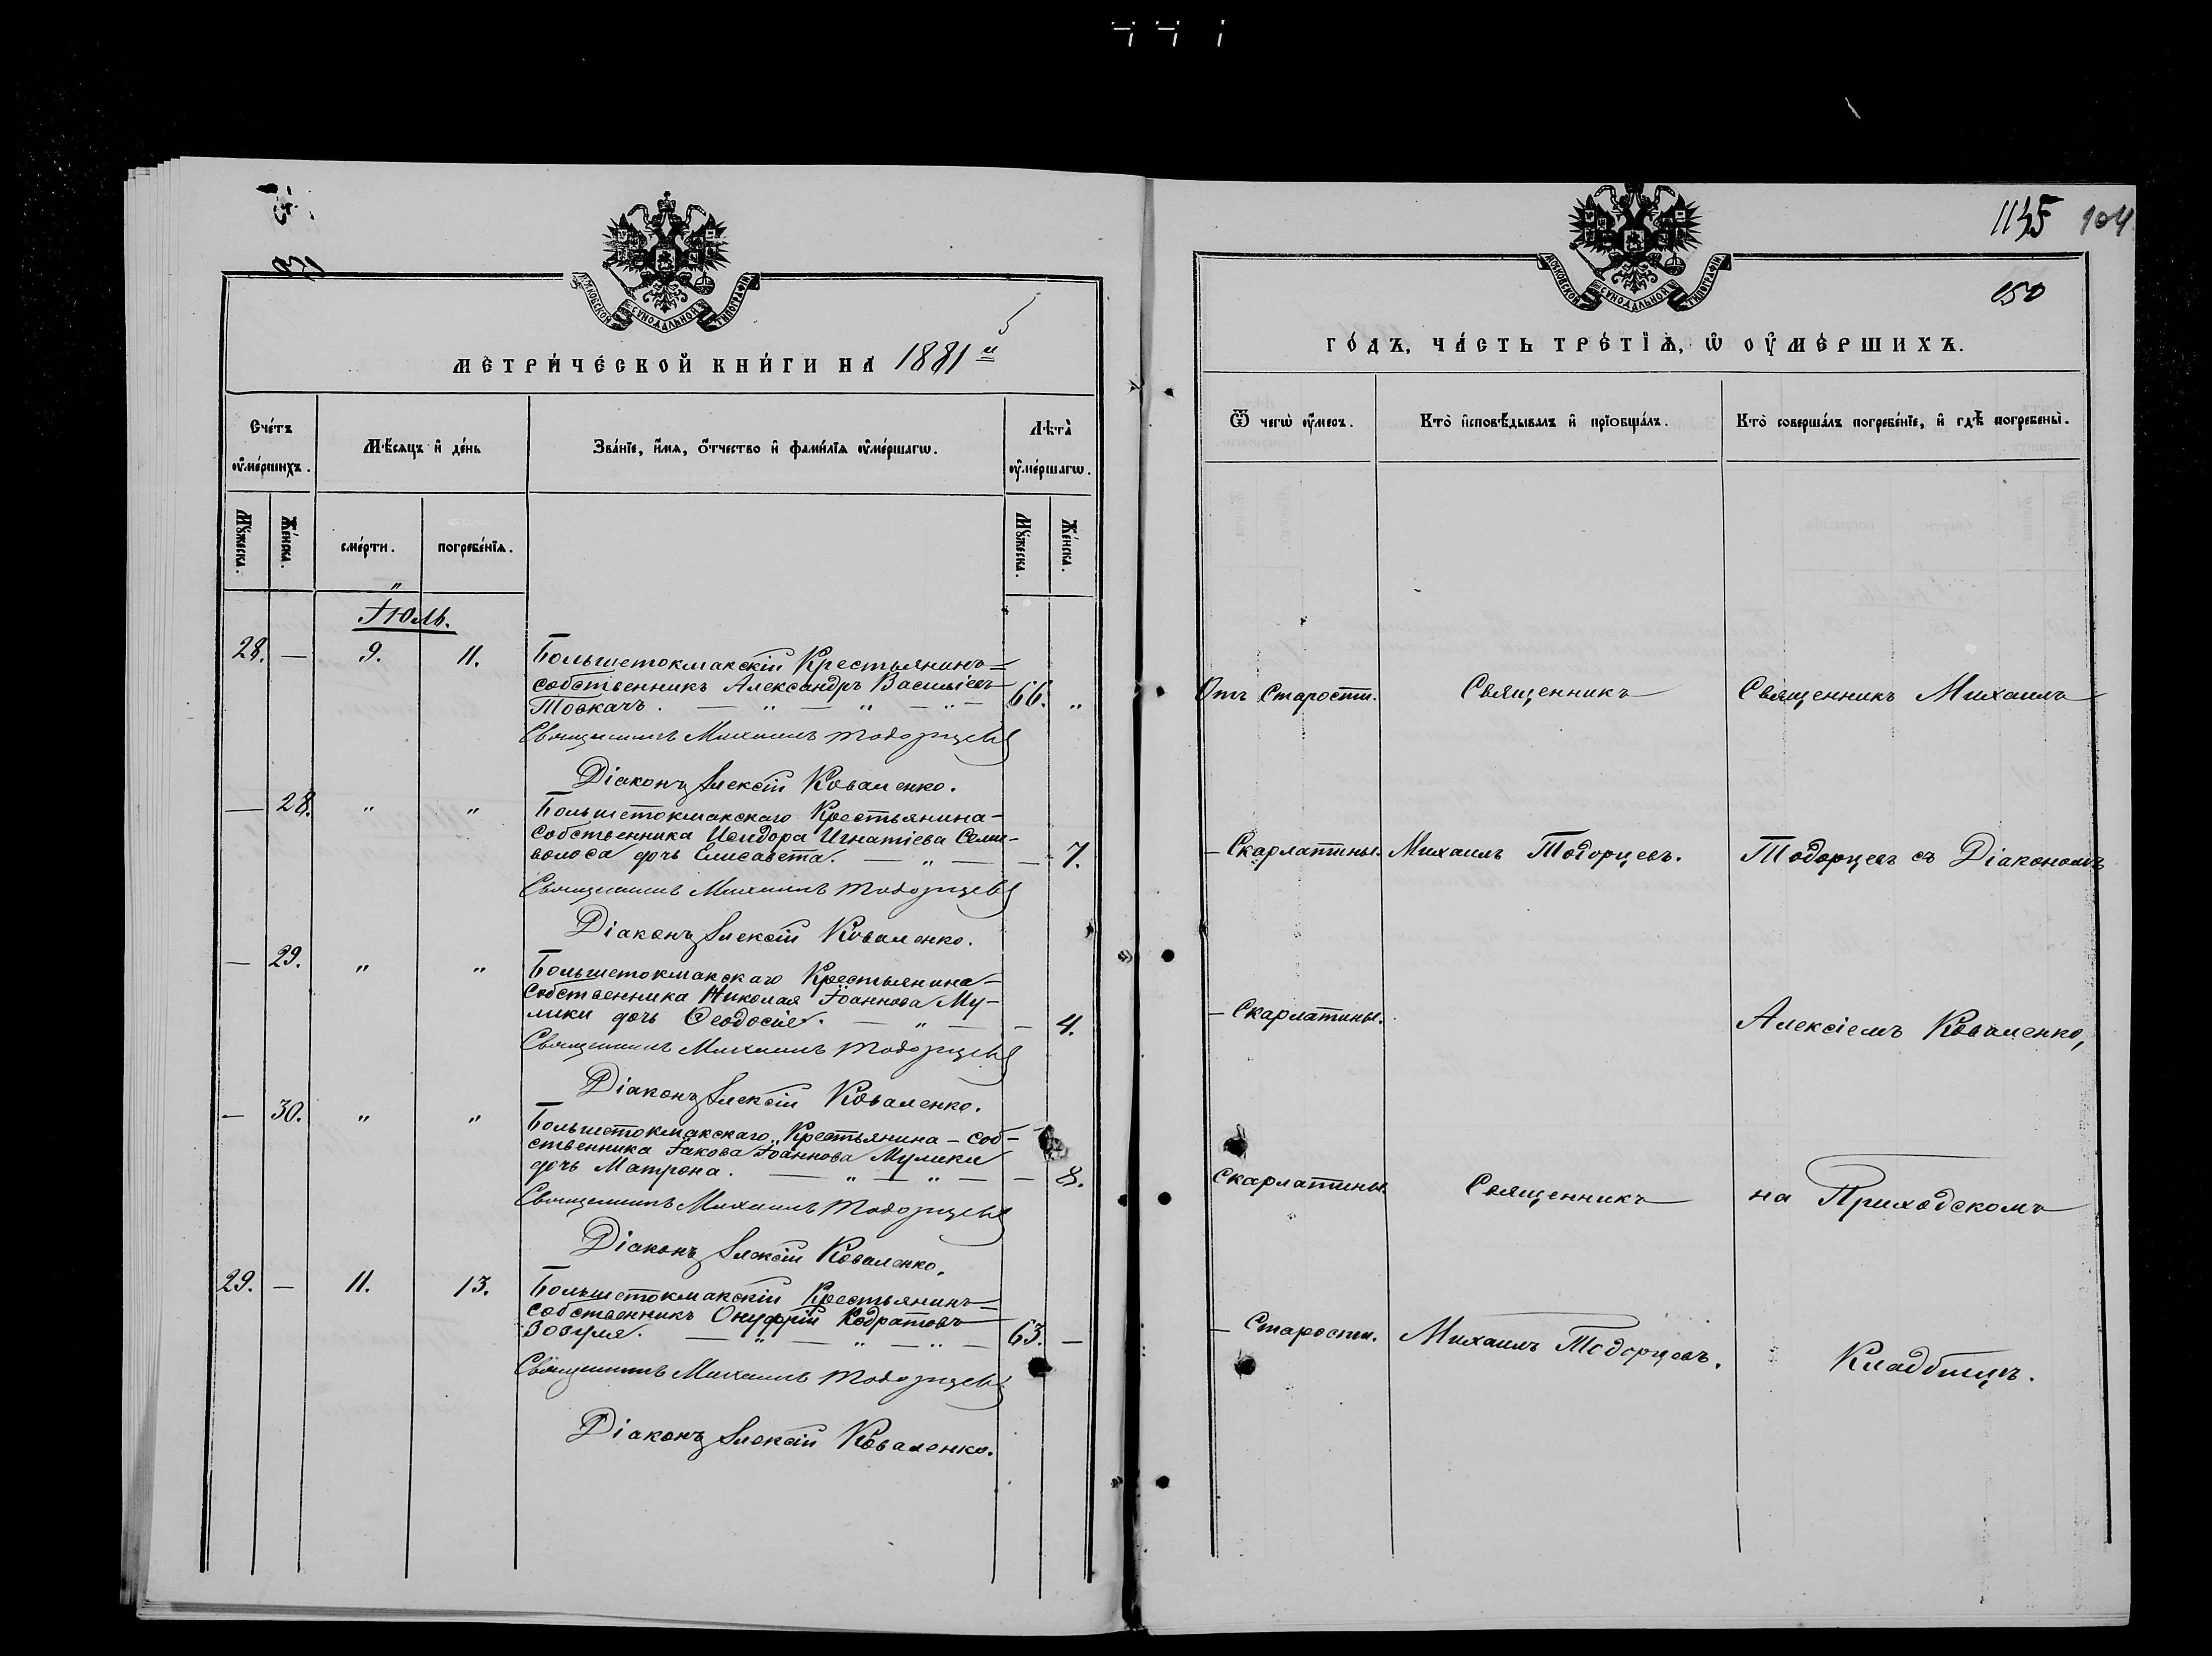 1145 104
150
МОСКОВСКОЙ СѴНОДАЛЬНОЙ ТИПОГРАФІИ
МЕТРИ́ЧЕСКОЙ КНИ́ГИ НА 1881й
Сче́тъ ᲂу҆ме́ршихъ.
Мѣ́сяцъ и҆ де́нь
Зва́нїе, и҆́мѧ, ѻ҆́тчество и҆ фами́лїѧ ᲂу҆ме́ршагѡ.
Лѣта̀ ᲂу҆ме́ршагѡ.
Мꙋ́жеска.
Же́нска.
сме́рти.
погребе́нїѧ.
Мꙋ́жеска.
Же́нска.
Іюль.
28. — 9. 11. Большетокмакскій Крестьянинъ=
собственникъ Александръ Васильевъ
Товкачъ. — " — " — " — 66. "
Священникъ Михаилъ Тодорцевъ
Діаконъ Алексій Коваленко.
— 28. " " Большетокмакскаго Крестьянина-
собственника Исидора Игнатіева Семи-
волоса дочь Елисавета. — " — — 7.
Священникъ Михаилъ Тодорцевъ
Діаконъ Алексій Коваленко.
— 29. " " Большетокмакскаго Крестьянина-
собственника Николая Іоаннова Му-
лики дочь Ѳеодосія. — " — — 4.
Священникъ Михаилъ Тодорцевъ
Діаконъ Алексій Коваленко.
— 30. " " Большетокмакскаго Крестьянина - соб-
ственника Іакова Іоаннова Мулики
дочь Матрона. — " — " — — 8.
Священникъ Михаилъ Тодорцевъ
Діаконъ Алексій Коваленко.
29. — 11. 13. Большетокмакскій Крестьянинъ=
собственникъ Онуфрій Кодратовъ
Зозуля. — " — " — " — 63. —
Священникъ Михаилъ Тодорцевъ
Діаконъ Алексій Коваленко.
МОСКОВСКОЙ СѴНОДАЛЬНОЙ ТИПОГРАФІИ
ГО́ДЪ, ЧА́СТЬ ТРЕ́ТЇѦ, Ѡ ОУ҆МЕ́РШИХЪ.
Ѿ чегѡ̀ ᲂу҆́меръ.
Кто̀ и҆сповѣ́дывалъ и҆ прїѡбща́лъ.
Кто̀ соверша́лъ погребе́нїе, и҆ гдѣ̀ погребены̀.
Отъ Старости. Священникъ Священникъ Михаилъ
— Скарлатины. Михаилъ Тодорцевъ. Тодорцевъ съ Діакономъ
— Скарлатины. Алексіемъ Коваленко,
Скарлатины. Священникъ на Приходскомъ
— Старости. Михаилъ Тодорцевъ. Кладбищѣ.